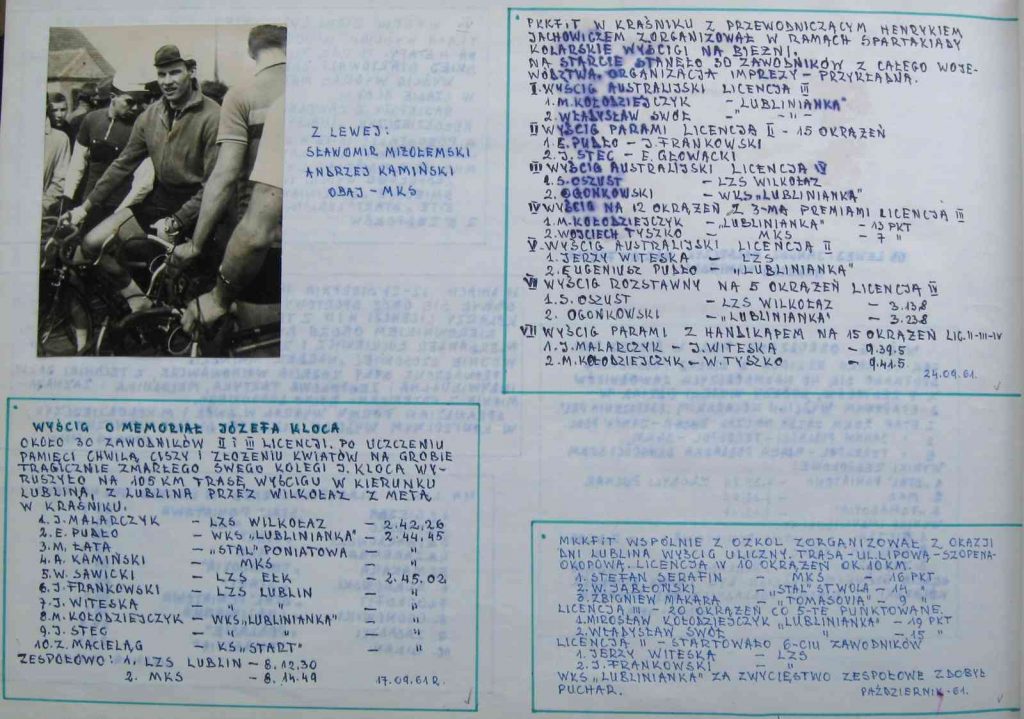 Z LEWEJ:
SŁAWOMIR MIZOŁEMSKI
ANDRZEJ KAMIŃSKI
OBAJ - MKS
WYŚCIG O MEMORIAŁ JÓZEFA KLOCA
OKOŁO 30 ZAWODNIKÓW II i III LICENCJI. PO UCZCZENIU
PAMIĘCI CHWILĄ CISZY I ZŁOŻENIU KWIATÓW NA GROBIE
TRAGICZNIE ZMARŁEGO SWEGO KOLEGI J. KLOCA WY-
RUSZYŁO NA 105 KM TRASĘ WYŚCIGU W KIERUNKU
LUBLINA, Z LUBLINA PRZEZ WILKOŁAZ Z METĄ
W KRAŚNIKU.
1. J. MALARCZYK - LZS WILKOŁAZ - 2.42,26
2. E. PUDŁO - WKS „LUBLINIANKA" - 2.44.45
3. M. ŁATA - „STAL" PONIATOWA - "
4. A. KAMIŃSKI - MKS - "
5. W. SAWICKI - LZS EŁK - 2.45.02
6. J. FRANKOWSKI - LZS LUBLIN - "
7. J. WITESKA - " " - "
8. M. KOŁODZIEJCZYK - WKS „LUBLINIANKA" - "
9. J. STEC - " " - "
10. Z. MACIELĄG - KS „START" - "
ZESPOŁOWO: 1. LZS LUBLIN - 8.12.30
2. MKS - 8.14.49
17.09.61 R.
PKKFiT W KRAŚNIKU Z PRZEWODNICZĄCYM HENRYKIEM
JACHOWICZEM ZORGANIZOWAŁ W RAMACH SPARTAKIADY
KOLARSKIE WYŚCIGI NA BIEŻNI.
NA STARCIE STANĘŁO 30 ZAWODNIKÓW Z CAŁEGO WOJE-
WÓDZTWA. ORGANIZACJA IMPREZY - PRZYKŁADNA.
I WYŚCIG AUSTRALIJSKI LICENCJA III
1. M. KOŁODZIEJCZYK - „LUBLINIANKA"
2. WŁADYSŁAW SWÓŁ - " - " -
II WYŚCIG PARAMI LICENCJA II - 15 OKRĄŻEŃ
1. E. PUDŁO - J. FRANKOWSKI
2. J. STEC - E. GŁOWACKI
III WYŚCIG AUSTRALIJSKI LICENCJA IV
1. S. OSZUST - LZS WILKOŁAZ
2. OGONKOWSKI - WKS „LUBLINIANKA"
IV WYŚCIG NA 12 OKRĄŻEŃ Z 3-MA PREMIAMI LICENCJA III
1. M. KOŁODZIEJCZYK - „LUBLINIANKA" - 13 PKT
2. WOJCIECH TYSZKO - MKS - 7 "
V WYŚCIG AUSTRALIJSKI LICENCJA II
1. JERZY WITESKA - LZS
2. EUGENIUSZ PUDŁO - „LUBLINIANKA"
VI WYŚCIG ROZSTAWNY NA 5 OKRĄŻEŃ LICENCJA IV
1. S. OSZUST - LZS WILKOŁAZ - 3.13.8
2. OGONKOWSKI - „LUBLINIANKA" - 3.23.8
VII WYŚCIG PARAMI Z HANDIKAPEM NA 15 OKRĄŻEŃ LIC. II-III-IV
1. J. MALARCZYK - J. WITESKA - 9.39.5
2. M. KOŁODZIEJCZYK - W. TYSZKO - 9.41.5
24.09.61.
MKKFiT WSPÓLNIE Z OZKOL ZORGANIZOWAŁ Z OKAZJI
DNI LUBLINA WYŚCIG ULICZNY. TRASA - UL. LIPOWA - SZOPENA -
OKOPOWA. LICENCJA IV 10 OKRĄŻEŃ OK. 10 KM.
1. STEFAN SERAFIN - MKS - 16 PKT
2. W. JABŁOŃSKI - „STAL" ST. WOLA - 14 "
3. ZBIGNIEW MAKARA - „TOMASOVIA" - 9 "
LICENCJA III - 20 OKRĄŻEŃ CO 5-TE PUNKTOWANE.
1. MIROSŁAW KOŁODZIEJCZYK „LUBLINIANKA" - 19 PKT
2. WŁADYSŁAW SWÓŁ " - 15 "
LICENCJA II - STARTOWAŁO 6-CIU ZAWODNIKÓW
1. JERZY WITESKA - LZS
2. J. FRANKOWSKI - "
WKS „LUBLINIANKA" ZA ZWYCIĘSTWO ZESPOŁOWE ZDOBYŁ
PUCHAR. PAŹDZIERNIK - 61.